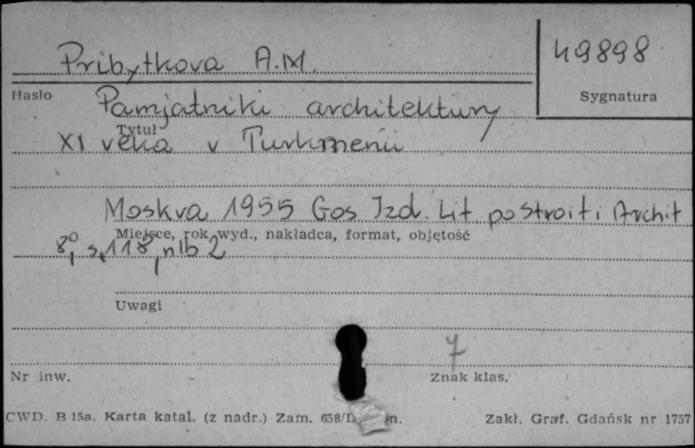 Pribytkova A.M.
49898
Hasło
Sygnatura
Pamjatniki architektury
Tytuł
XI veka v Turkmenii
Moskva 1955 Gos Izd. Lit po stroit i Archit
Miejsce, rok wyd., nakładca, format, objętość
8°, s. 118, nlb 2
Uwagi
7
Nr inw.
Znak klas.
CWD. B 15a. Karta katal. (z nadr.) Zam. 658/D n.
Zakł. Graf. Gdańsk nr 1757